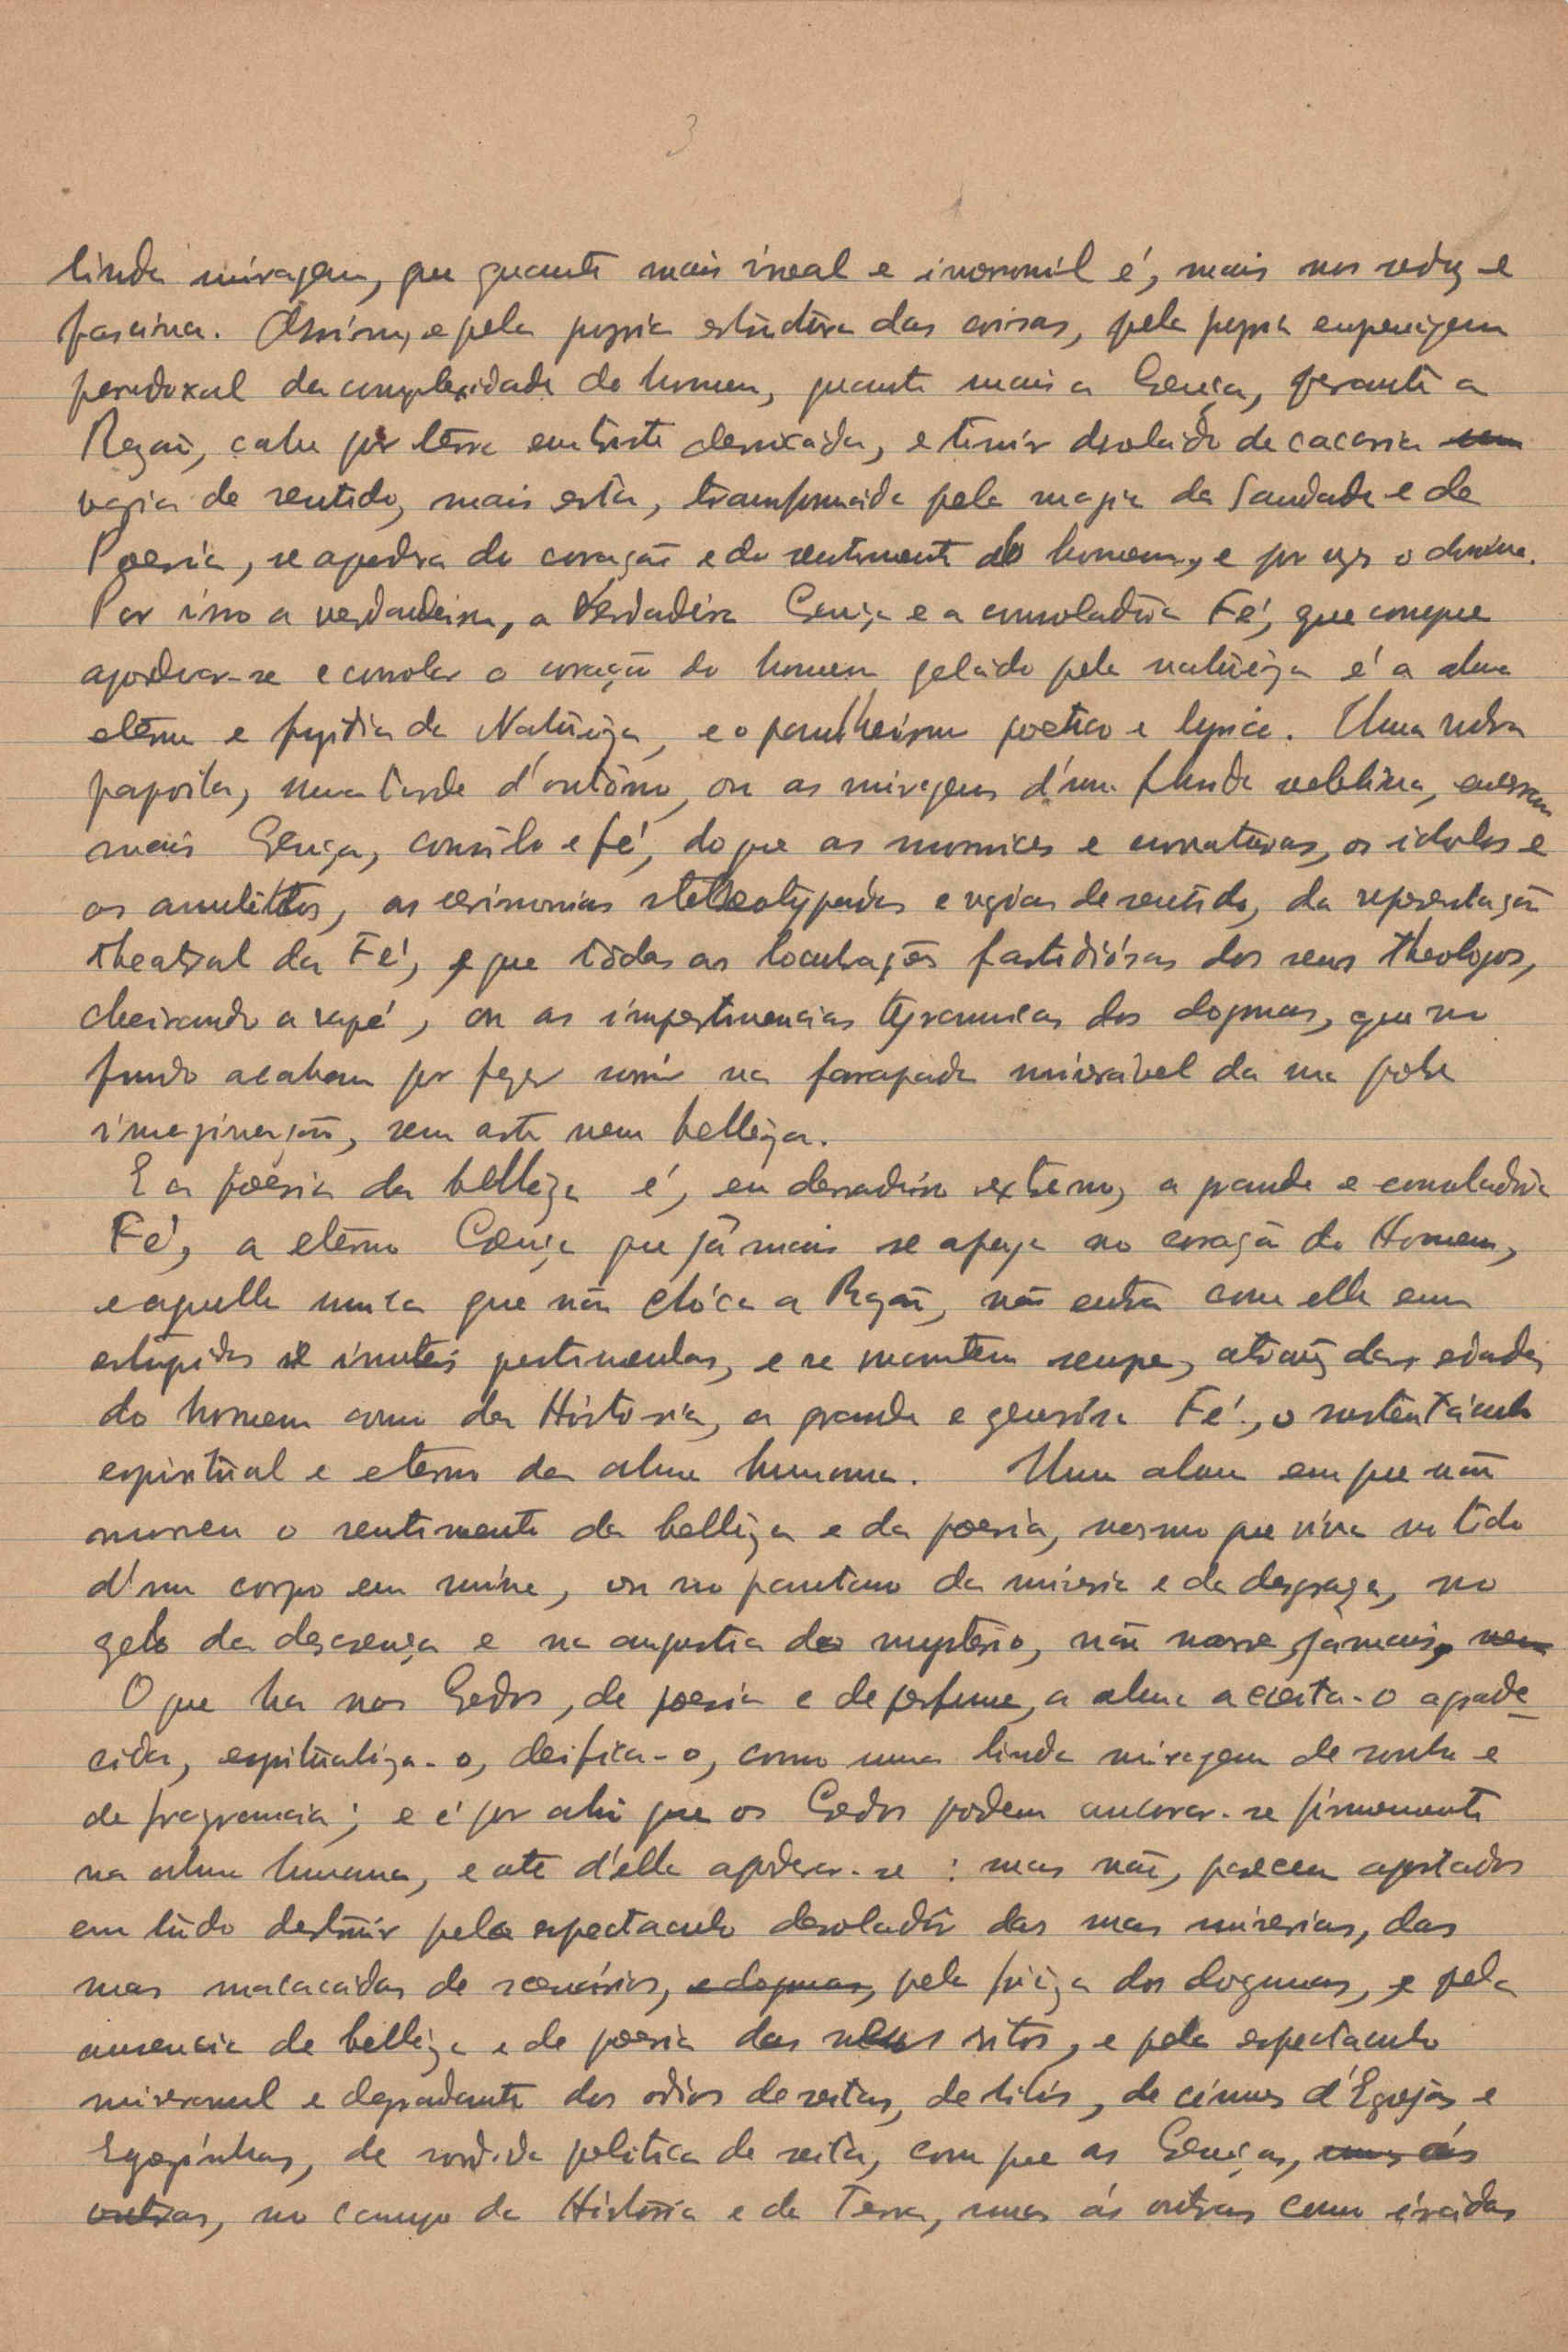 3
linda miragem, que quanto mais irreal e inverosimil é, mais nos seduz e
fascina. Assim, e pela propria estructura das coisas, pela propria engrenagem
paradoxal da complexidade do homem, quanto mais a Crença, perante a
Razão, cahe por terra em triste derrocada, e tinir desolado de cacaria
vazia de sentido, mais esta, transformada pela magia da Saudade e da
Poesia, se apodera do coração e do sentimento do homem, e por vezes o domina.
Por isso a verdadeira, a verdadeira Crença e a consoladora Fé, que consegue
apoderar-se e consolar o coração do homem gelado pela natureza é a alma
eterna e fugidia da Natureza, e o pantheismo poetico e lyrico. Uma rubra
papoila, numa tarde d'outôno, ou as miragens d'uma funda neblina, encerram
mais Crença, consôlo e fé, do que as momices e, os idolos e
os amulettos, as cerimonias stereotypadas e vazias de sentido, da representação
theatral da Fé, e que tôdas as locubrações fastidiósas dos seus theologos,
cheirando a rapé, ou as impertinencias tyrannicas dos dogmas, que no
fundo acabam por fazer sorrir na farrapada miseravel da sua pobre
imaginação, sem arte nem belleza.
E a poesia da belleza é, em derradeiro extremo, a grande e consoladora
Fé, a eterna Crença que jámais se apaga no coração do Homem,
e aquella unica que não chóca a Razão, não entra com ella em
estupidos e inuteis, e se mantem sempre, atravez das edades
do homem como da Historia, a grande e generósa Fé, o sustentáculo
espiritual e eterno da alma humana. Uma alma em que não
morreu o sentimento da belleza e da poesia, mesmo que viva no
d'um corpo em ruina, ou no pantano da miseria e da desgraça, no
gelo da descrença e na angustia do mysterio, não morre jámais, nem
O que ha nos Credos, de poesia e de perfume, a alma acceita-o agrade-
cida, espiritualiza-o, deifica-o, como uma linda miragem de sonho e
de fragrancia; e é por ahi que os Credos podem ancorar-se firmemente
na alma humana, e até d'ella apoderar-se: mas não, parecem apostados
em tudo destruir pelo espectaculo desolador das suas miserias, das
suas macacadas de scenários, e dogmas, pela frieza dos dogmas, e pela
ausencia de belleza e de poesia dos seus ritos, e pelo espectaculo
miseravel e degradante dos odios de seitas, de litis, de ciumes d'Egrejas e
Egrejinhas, de sordida politica de seita, com que as Crenças, umas ás
outras, no campo da História e da Terra, umas ás outras como iradas